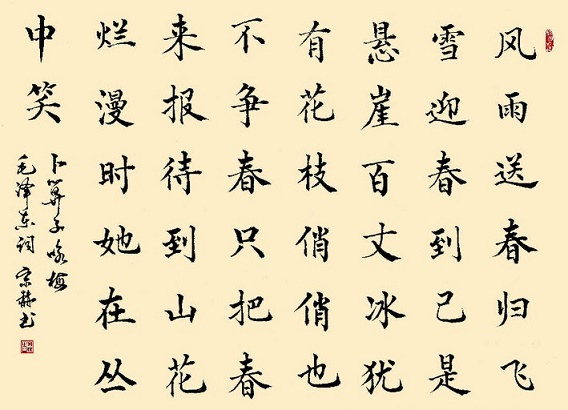 风雨送春归飞
雪迎春到已是
悬崖百丈冰犹
有花枝俏俏也
不争春只把春
来报待到山花
烂漫时她在丛
中笑
卜算子咏梅
毛泽东词 书